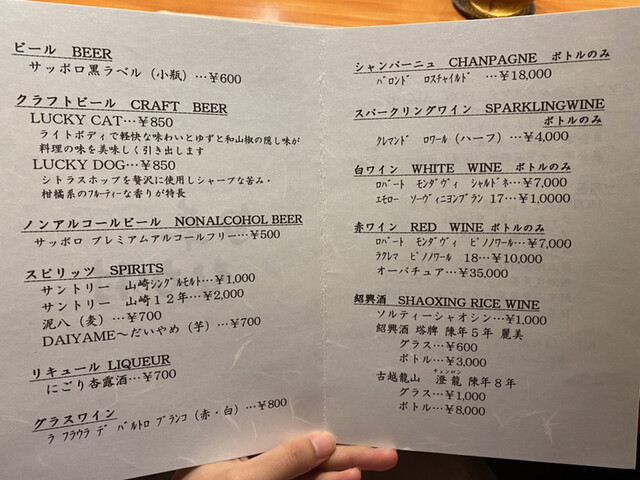 ビール BEER
サッポロ黒ラベル（小瓶）…¥600
クラフトビール CRAFT BEER
LUCKY CAT…¥850
ライトボディで軽快な味わいとゆずと和山椒の隠し味が
料理の味を美味しく引き出します
LUCKY DOG…¥850
シトラスホップを贅沢に使用しシャープな苦み・
柑橘系のフルーティーな香りが特長
ノンアルコールビール NONALCOHOL BEER
サッポロ プレミアムアルコールフリー…¥500
スピリッツ SPIRITS
サントリー 山崎シングルモルト…¥1,000
サントリー 山崎１２年…¥2,000
泥八（麦）…¥700
DAIYAME～だいやめ（芋）…¥700
リキュール LIQUEUR
にごり杏露酒…¥700
グラスワイン
ラ フラウラ デ バルトロ ブランコ（赤・白）…¥800
シャンパーニュ CHANPAGNE ボトルのみ
バロンド ロスチャイルド …¥18,000
スパークリングワイン SPARKLINGWINE
ボトルのみ
クレマンド ロワール（ハーフ）…¥4,000
白ワイン WHITE WINE ボトルのみ
ロバート モンダヴィ シャルドネ…¥7,000
エモロー ソーヴィニヨンブラン 17…1,0000
赤ワイン RED WINE ボトルのみ
ロバート モンダヴィ ピノノワール…¥7,000
ラクレマ ピノノワール 18…¥10,000
オーパチュア…¥35,000
紹興酒 SHAOXING RICE WINE
ソルティーシャオシン…¥1,000
紹興酒 塔牌 陳年５年 麗美
グラス…¥600
ボトル…¥3,000
チェンロン
古越龍山 澄龍 陳年８年
グラス…¥1,000
ボトル…¥8,000